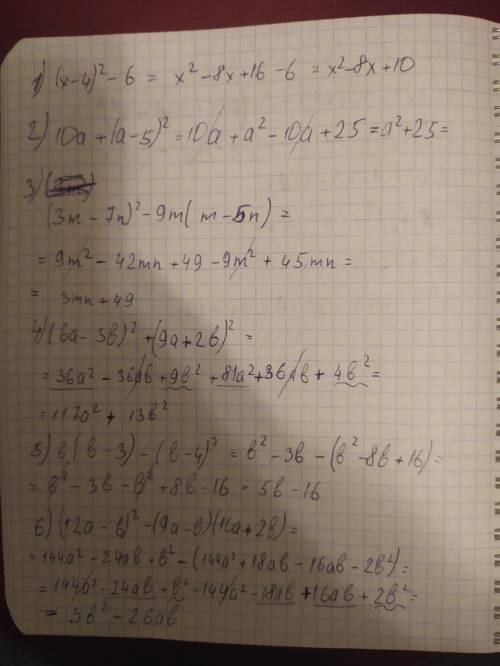 1) (x-4)² - 6 = x² - 8x + 16 - 6 = x² - 8x + 10
2) 10a + (a-5)² = 10a + a² - 10a + 25 = a² + 25 =
3)
(3m - 7n)² - 9m(m - 5n) =
= 9m² - 42mn + 49 - 9m² + 45mn =
= 3mn + 49
4) (6a - 3в)² + (9a + 2в)² =
= 36a² - 36aв + 9в² + 81a² + 36aв + 4в² =
= 117a² + 13в²
5) в(в - 3) - (в - 4)² = в² - 3в - (в² - 8в + 16) =
= в² - 3в - в² + 8в - 16 = 5в - 16
6) (12a - в)² - (9a - в)(16a + 2в) =
= 144a² - 24aв + в² - (144a² + 18aв - 16aв - 2в²) =
= 144a² - 24aв + в² - 144a² - 18aв + 16aв + 2в² =
= 3в² - 26aв